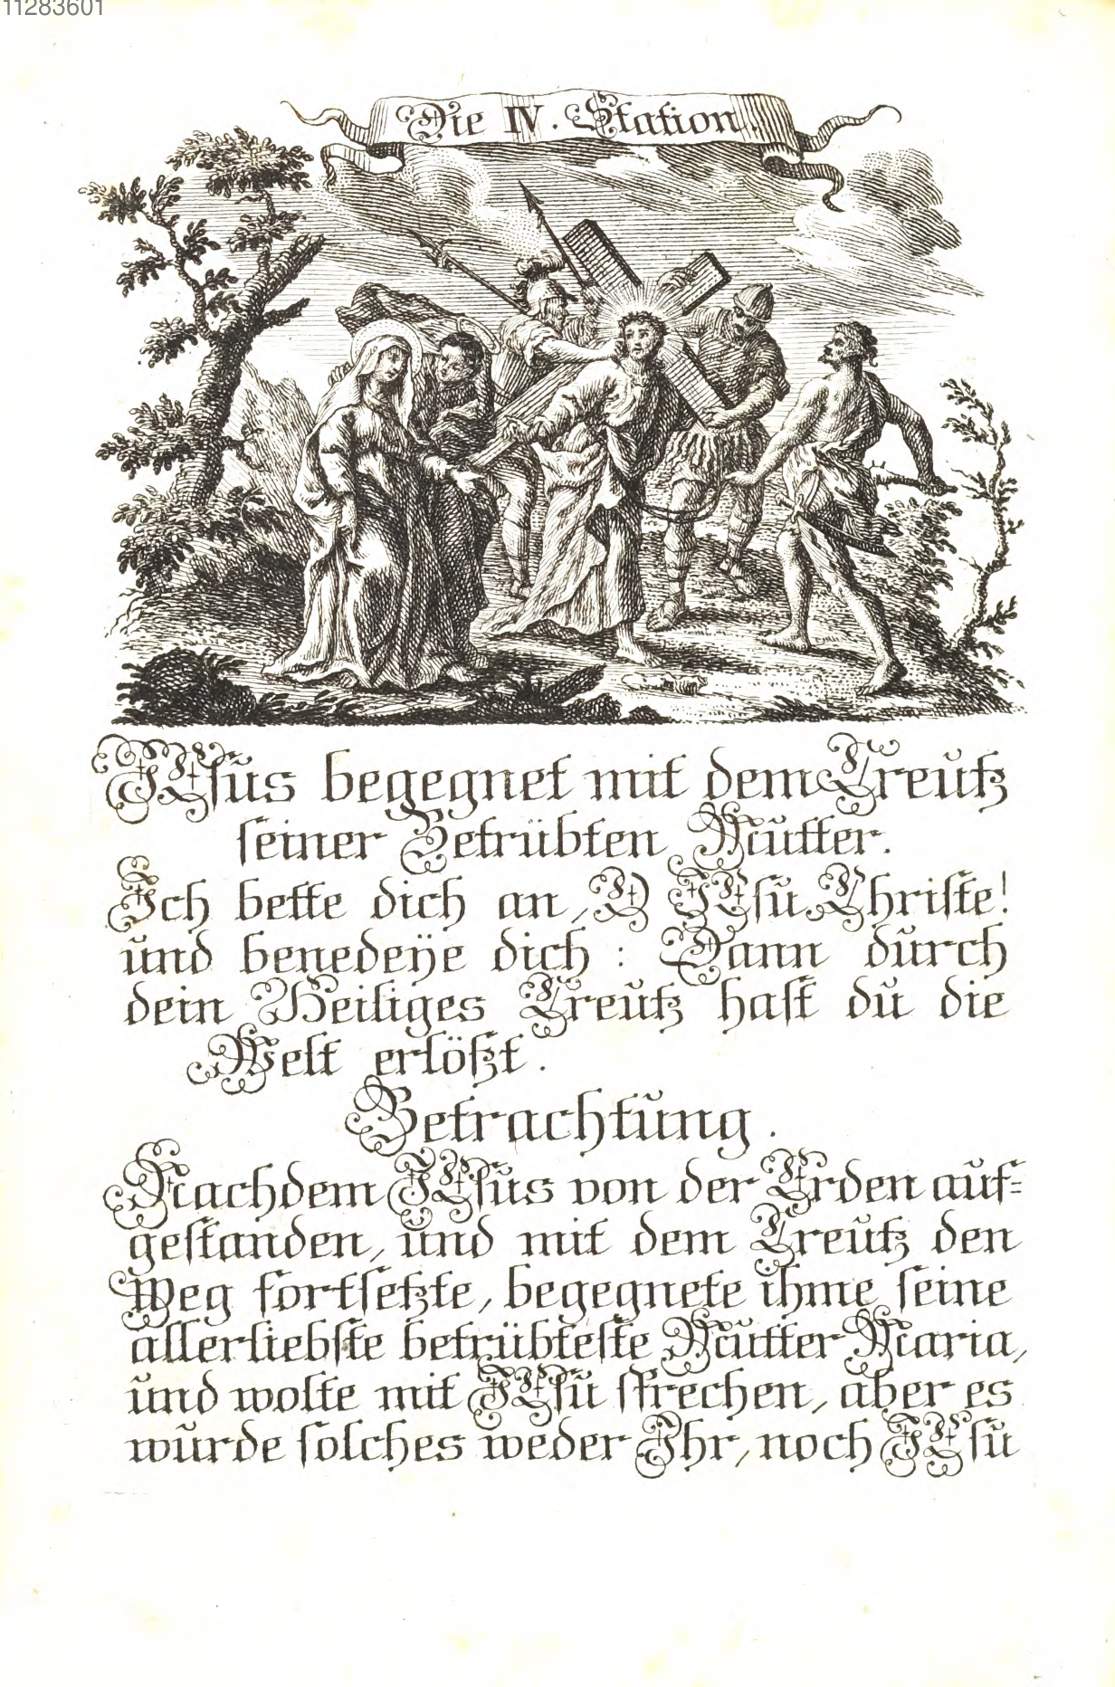 11283601
Die IV. Station.
JEsus begegnet mit dem Creutz
seiner Betrübten Mutter.
Ich bette dich an, O JEsu Christe!
und benedeÿe dich: Dann durch
dein Heiliges Creutz hast du die
Welt erlößt.
Betrachtung.
Nachdem JEsus von der Erden auf=
gestanden, und mit dem Creutz den
Weg fortsetzte, begegnete ihme seine
allerliebste betrübteste Mutter Maria,
und wolte mit JEsu sprechen, aber es
wurde solches weder Ihr, noch JEsu